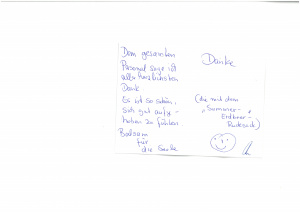 Dem gesamten
Personal sage ich
allerherzlichsten
Dank
Es ist so schön,
sich gut aufge-
hoben zu fühlen
Balsam
für
die Seele
Danke
(die mit dem
"Sommer-
Erdbeer-
Rucksack")